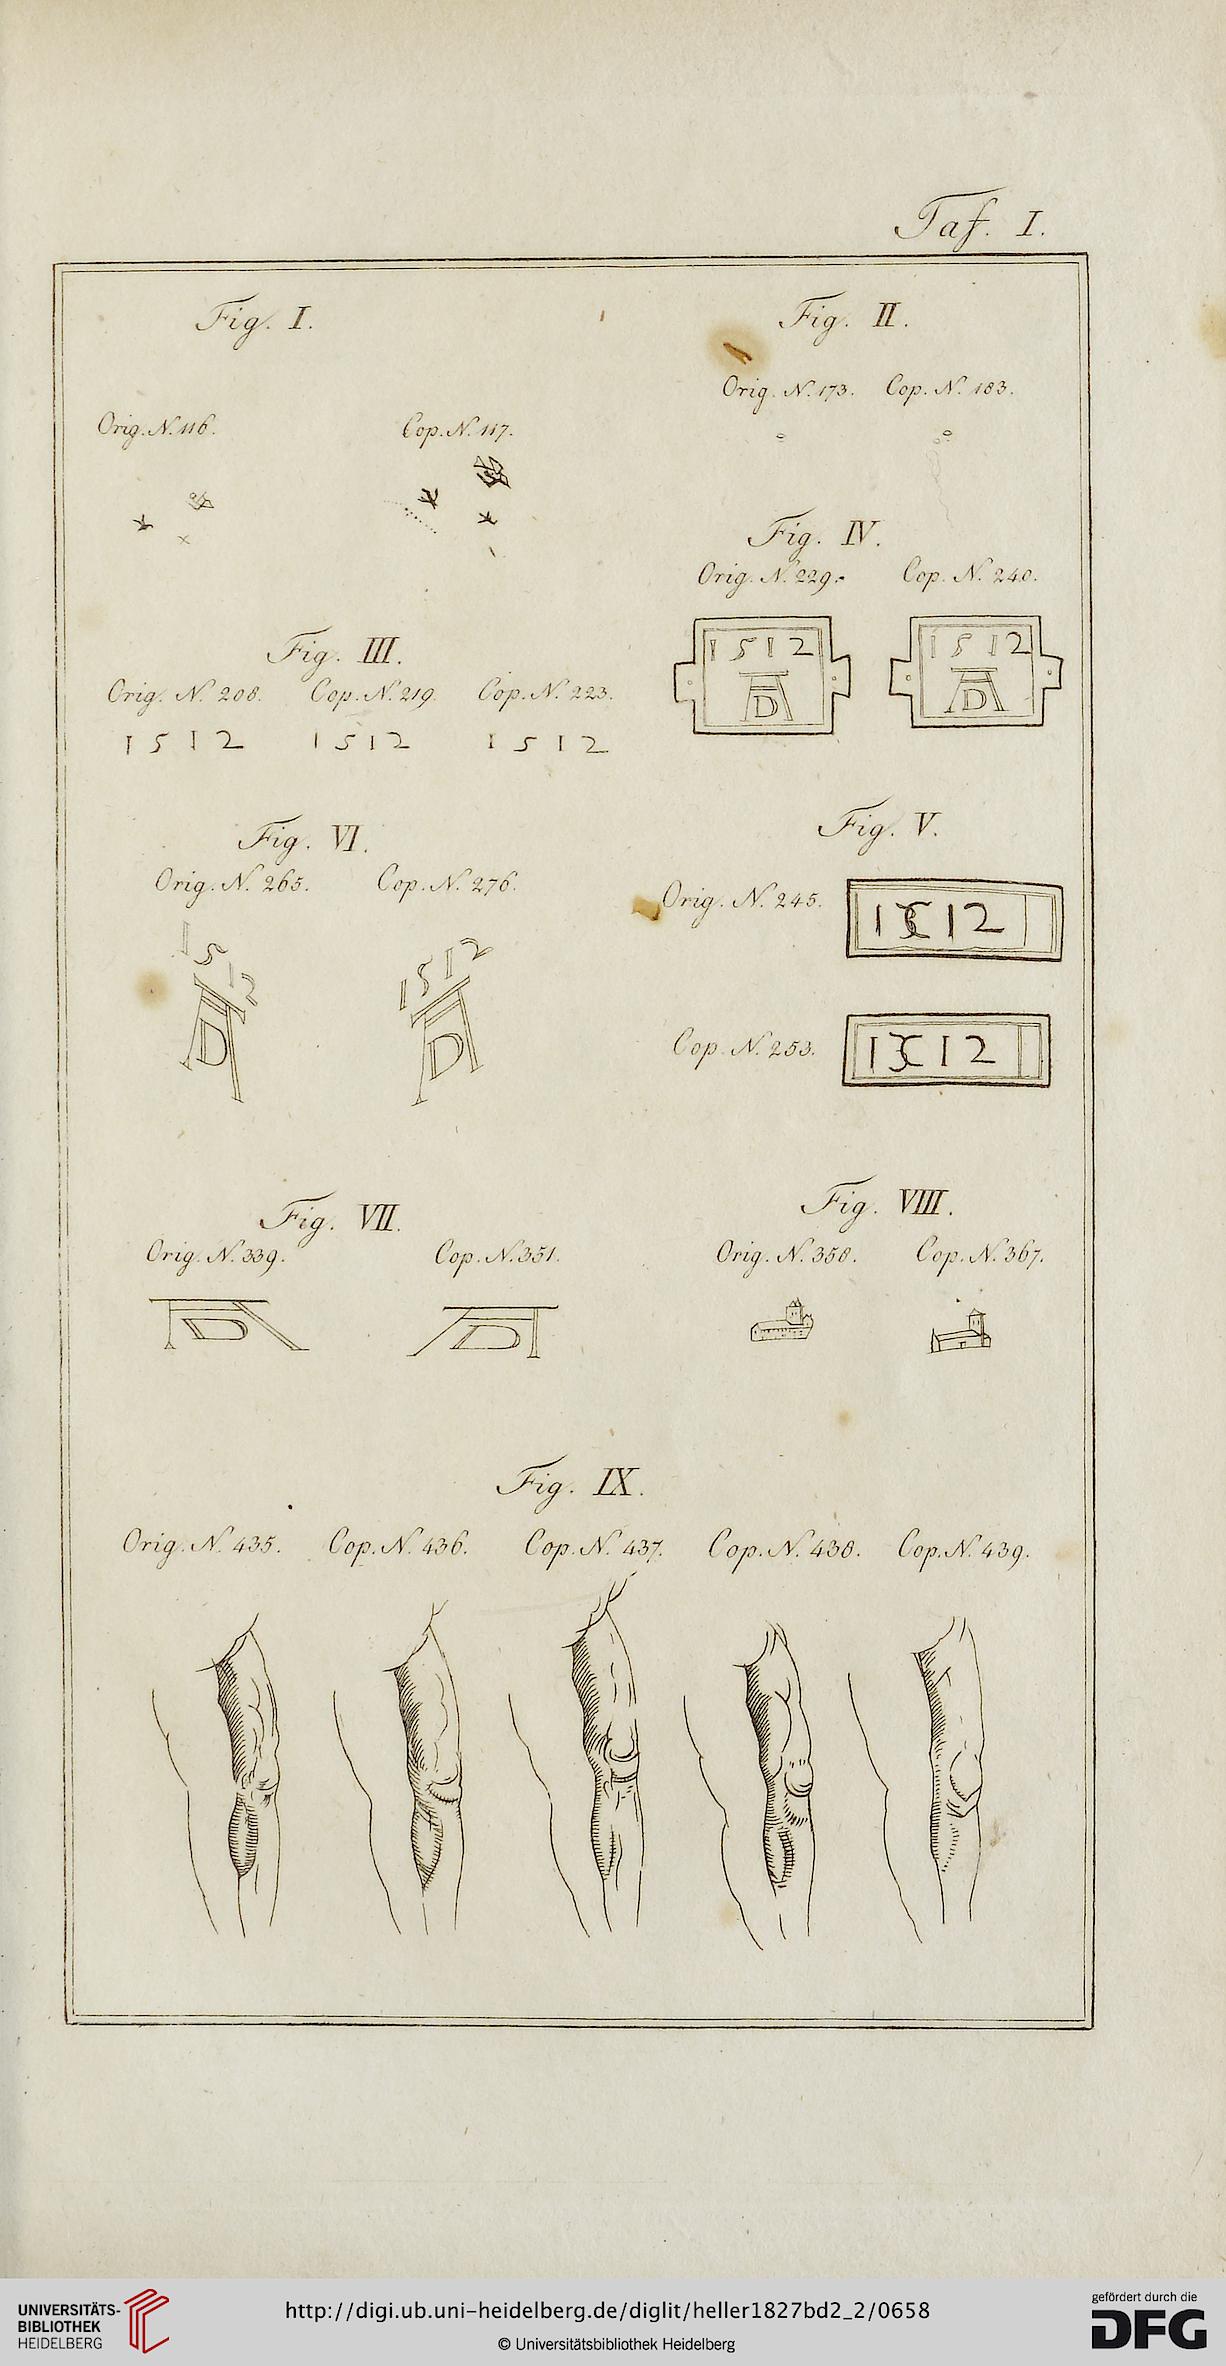 Taf. I.
Fig. I.
Orig. N. 116. Cop. N. 117.
Fig. II.
Orig. N. 173. Cop. N. 183.
Fig. III.
Orig. N. 208. Cop. N. 219. Cop. N. 223.
1512 1512 1512
Fig. IV.
Orig. N. 229. Cop. N. 240.
1512 1512
AD AD
Fig. V.
Orig. N. 245.
1512
Cop. N. 253.
1512
Fig. VI.
Orig. N. 265. Cop. N. 276.
1512 1512
AD AD
Fig. VII.
Orig. N. 339. Cop. N. 351.
AD AD
Fig. VIII.
Orig. N. 358. Cop. N. 367.
Fig. IX.
Orig. N. 435. Cop. N. 436. Cop. N. 437. Cop. N. 438. Cop. N. 439.
UNIVERSITÄTS-
BIBLIOTHEK
HEIDELBERG
http://digi.ub.uni-heidelberg.de/diglit/heller1827bd2_2/0658
© Universitätsbibliothek Heidelberg
gefördert durch die
DFG